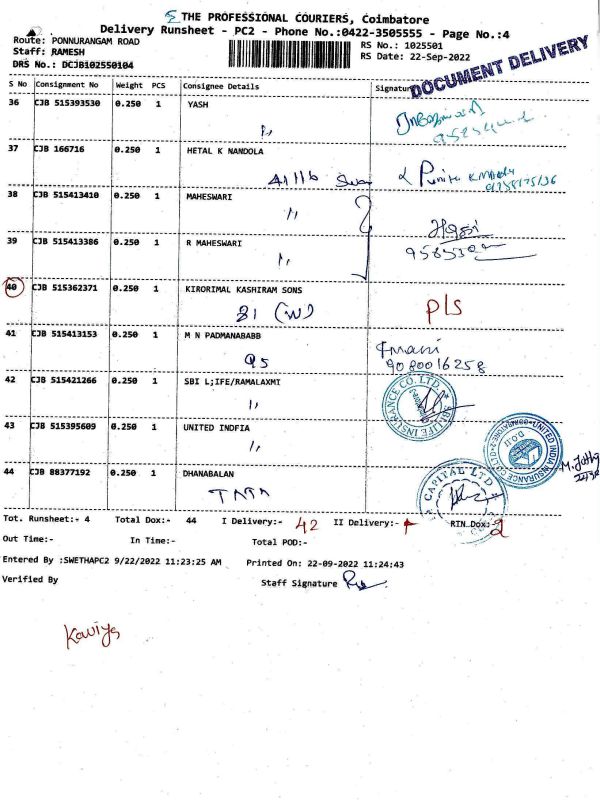 THE PROFESSIONAL COURIERS, Coimbatore
Delivery Runsheet - PC2 - Phone No.:0422-3505555 - Page No.:4
Route: PONNURANGAM ROAD
RS No.: 1025501
Staff: RAMESH
RS Date: 22-Sep-2022
DRS No.: DCJB102550104
DOCUMENT DELIVERY
S No Consignment No Weight PCS Consignee Details
36 CJB 515393530 0.250 1 YASH
37 CJB 166716 0.250 1 HETAL K NANDOLA
38 CJB 515413410 0.250 1 MAHESWARI
39 CJB 515413386 0.250 1 R MAHESWARI
40 CJB 515362371 0.250 1 KIRORIMAL KASHIRAM SONS
81 (W) pls
41 CJB 515413153 0.250 1 M N PADMANABABB
95
9080016258
42 CJB 515421266 0.250 1 SBI L;IFE/RAMALAXMI
SBI LIFE INSURANCE CO. LTD.
43 CJB 515395609 0.250 1 UNITED INDFIA
UNITED INDIA INSURANCE CO LTD
44 CJB 88377192 0.250 1 DHANABALAN
TATA
CAPITAL LTD
Tot. Runsheet:- 4 Total Dox:- 44 I Delivery:- 42 II Delivery:- RTN Dox:- 2
Out Time:- In Time:- Total POD:-
Entered By :SWETHAPC2 9/22/2022 11:23:25 AM Printed On: 22-09-2022 11:24:43
Verified By Staff Signature
Kaviya